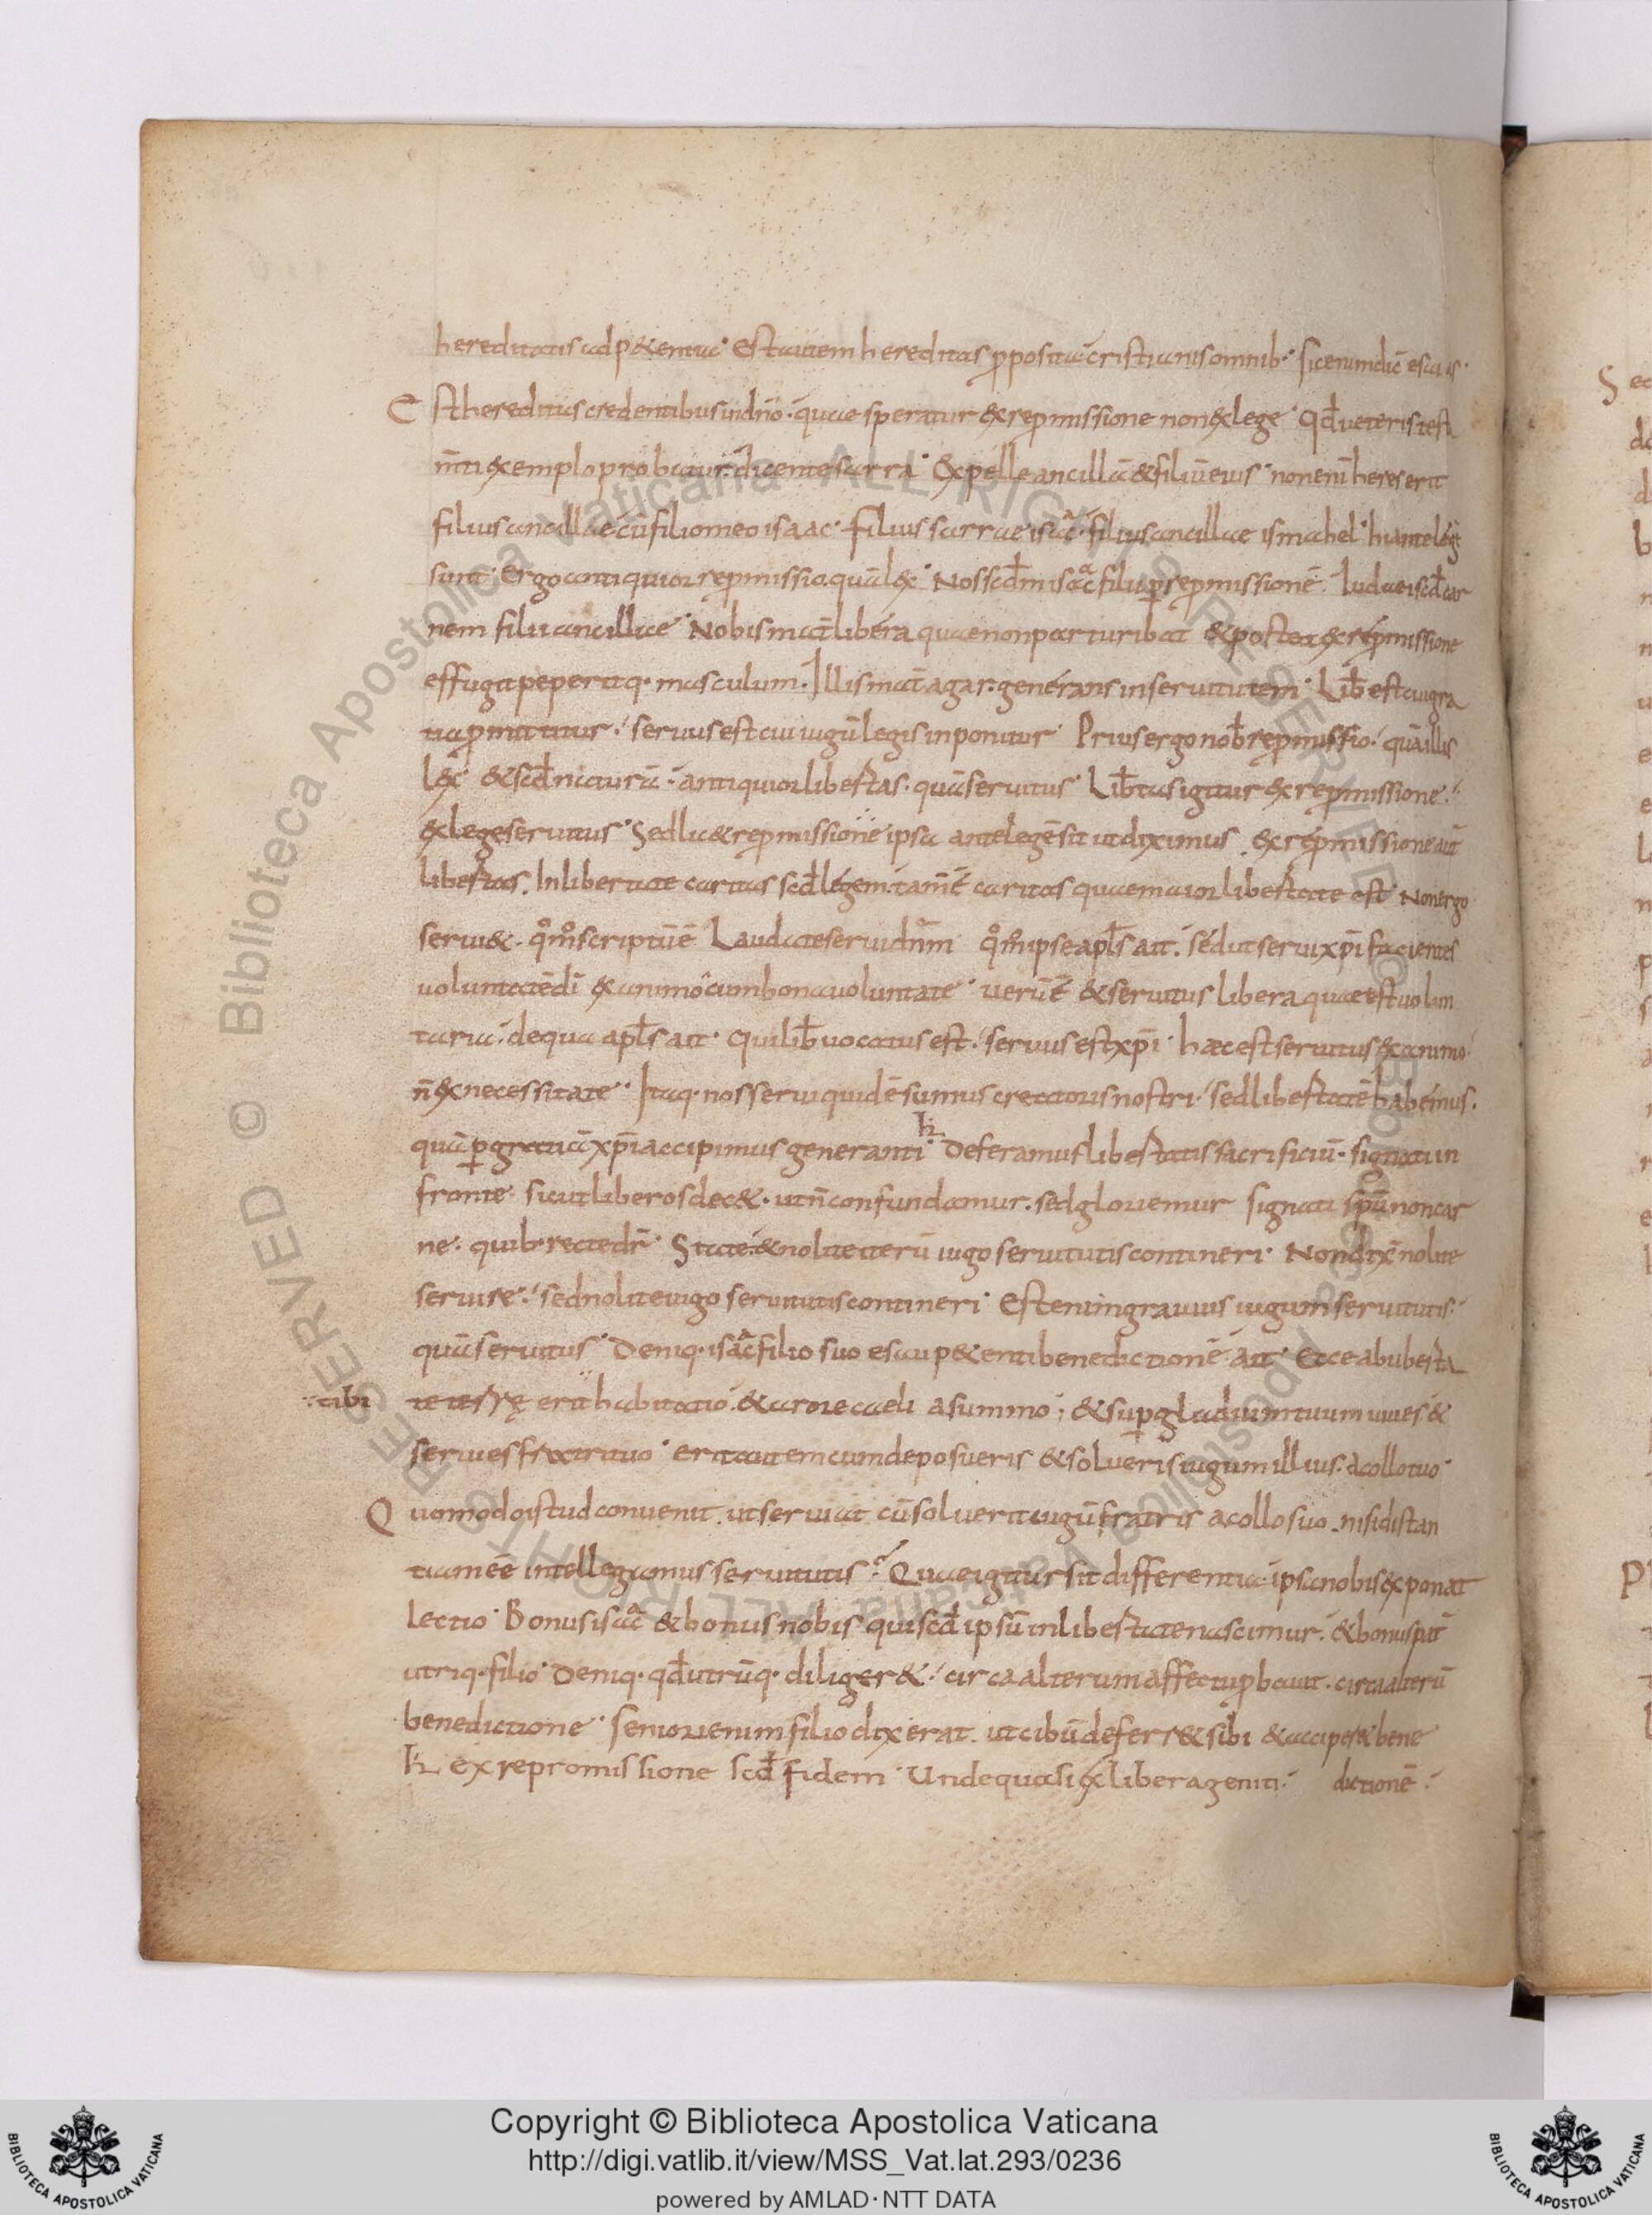 hereditatis adp&entia· Est autem hereditas ꝓposita cristianis omnib·· sicenim dic̄ esaias·
Est hereditas credentibus indn̄o· quae speratur &xreꝓmissione non &xlege· qd̄ ueteris testa
m̄ti &xemplo probatur· dicente sarra· &xpelle ancillā & filiū eius· non enī heres erit
filius ancillae cū filio meo isaac· filius sarrae isāc· filius ancillae ismahel· hi ante legē
sunt· Ergo antiquior reꝓmissio quā l&x· Nos scd̄m isāc filii ꝑ reꝓmissionē· Iudaei scd̄ car
nem filii ancillae· Nobis mat̄ libera quae non parturibat & postea &xreꝓmissione
effugit peperitq· masculum· Illis mat̄ agar· generans inseruitutem· Lib̄ est cui gra
tia ꝓmittitur· seruus est cui iugū legis inponitur· Prius ergo nob̄ reꝓmissio· quā illis
l&x· & scd̄ naturā· antiquior libertas· quā seruitus· Lib̄tas igitur &xreꝓmissione·
&xlege seruitus· Sed licet & reꝓmissione ipsa ante legē sit ut diximus &xreꝓmissione aūt
libertas· In libertate caritas scd̄ legem· tam̄ ē caritas quae maior libertate est· Non ergo
serui &· qm̄ scriptū ē Laudate serui dn̄m qm̄ ipse apl̄s ait· sed ut serui xp̄i facientes
uoluntatē dī &xanimo cum bona uoluntate· uerū ē & seruitus libera quae est uolun
taria· de qua apl̄s ait· Qui lib̄ uocatus est· seruus est xp̄i· haec est seruitus &xanimo·
n̄ &xnecessitate· Itaq· nos serui quidē sumus creatoris nostri· sed libertatē habemus·
quā ꝑ gratiā xp̄i accipimus generati· Deferamus libertatis sacrificiū· signati in
fronte· sicut liberos dec&· ut n̄ confundamur· sed gloriemur signati sp̄u non car
ne· quib· recte dr̄· State· & nolite iterū iugo seruitutis contineri· Non dix̄ nolite
seruire· sed nolite iugo seruitutis contineri· Est enim grauius iugum seruitutis·
quā seruitus· Deniq· isāc filio suo esau p&enti benedictionē ait· Ecce ab uberta
tibi te terrę erit habitatio· & a rore caeli a summo; & suꝑ gladium tuum uiues &
seruies fratri tuo· erit autem cum deposueris & solueris iugum illius· a collo tuo·
Quomodo istud conuenit· ut seruiat cū soluerit iugū fratris a collo suo· nisi distan
tiam ēē intellegamus seruitutis? Quae igitur sit differentia ipsa nobis exponat
lectio· Bonus isāc & bonus nobis qui scd̄ ipsū in libertate nascimur· & bonus pat̄
utriq· filio· Deniq· qd̄ utrūq· diliger&· circa alterum affectu ꝓbauit· circa alterū
benedictione· seniori enim filio dixerat ut cibū deferr& sibi & acciper& bene
ex repromissione scd̄ fidem· Unde quasi &xlibera geniti· dictionē·
Copyright © Biblioteca Apostolica Vaticana
http://digi.vatlib.it/view/MSS_Vat.lat.293/0236
powered by AMLAD·NTT DATA